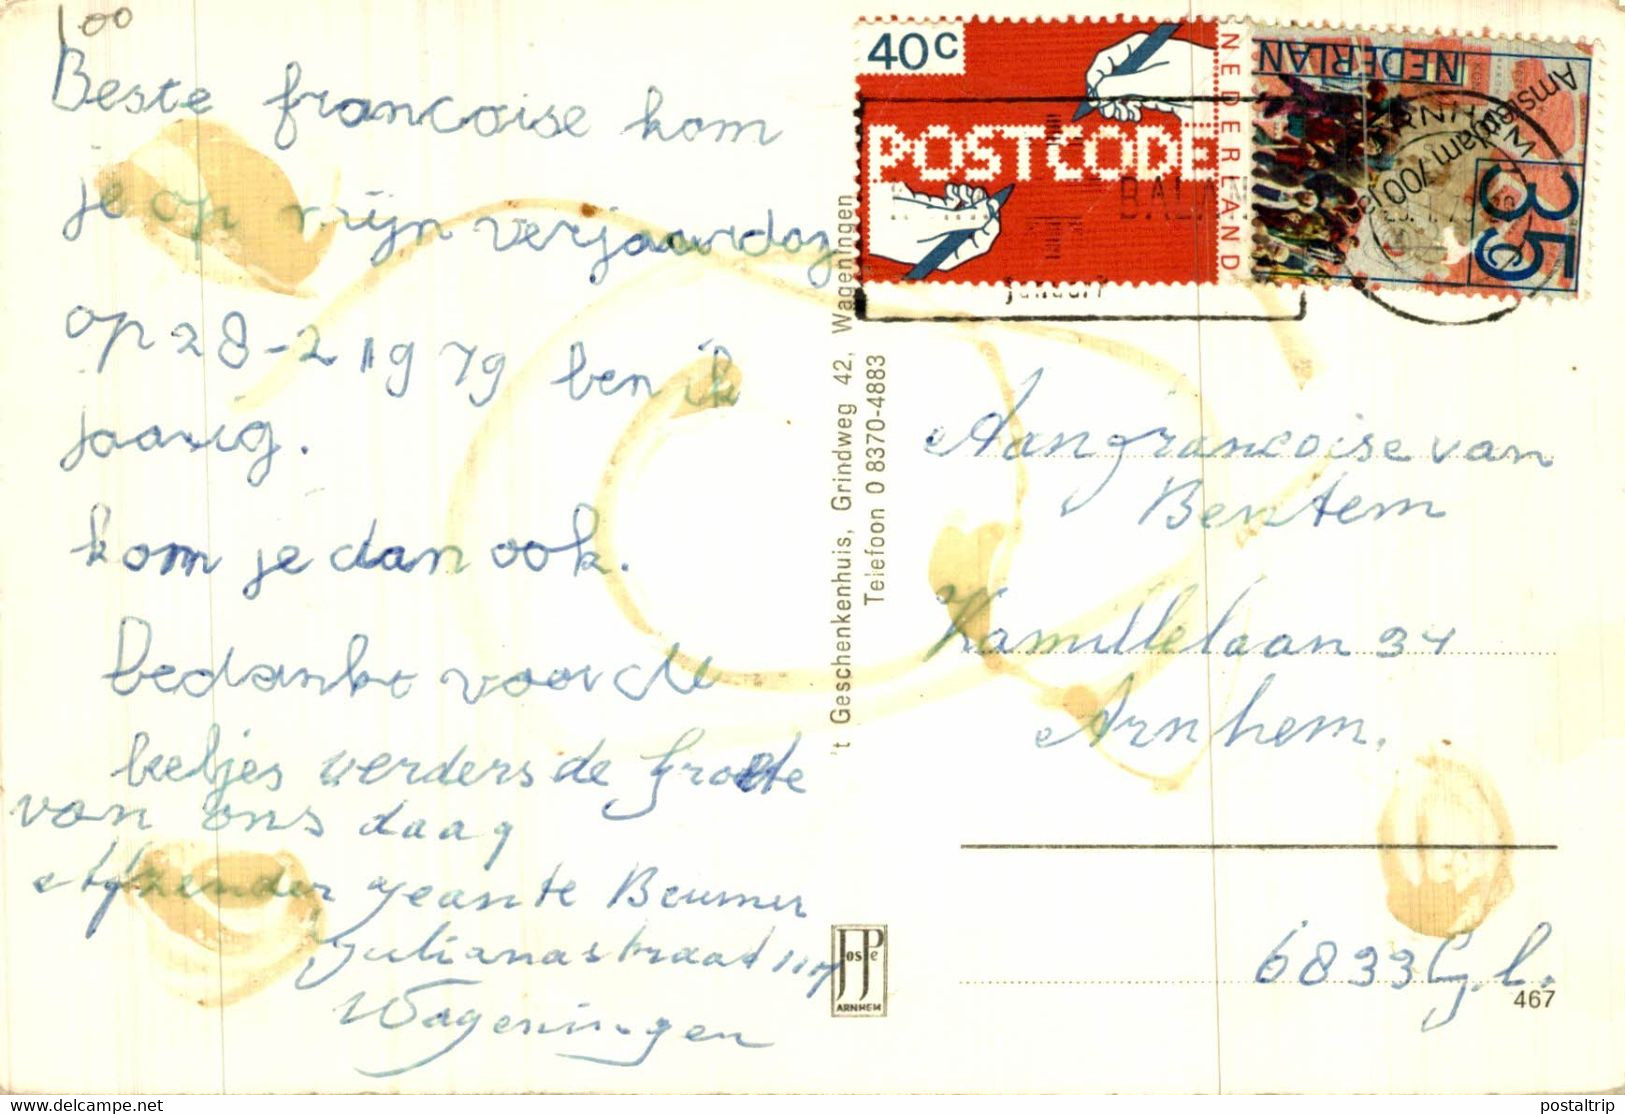 100
Beste francoise kom
je op mijn verjaardag
op 28-2 1979 ben ik
jaarig.
kom je dan ook.
Bedankt voor de
verders de groete
van ons daag
afzender Jeante Beumer
Julianastraat
Wageningen
't Geschenkenhuis, Grindweg 42, Wageningen
Telefoon 0 8370-4883
JosPe
ARNHEM
40c
POSTCODE
NEDERLAND
NEDERLAN
Amsterdam 700 jaar
35c
ARNHEM
BALAN
januari
Aan francoise van
Bentem
Kamillelaan 34
Arnhem.
6833 G.L.
467
www.delcampe.net
postaltrip